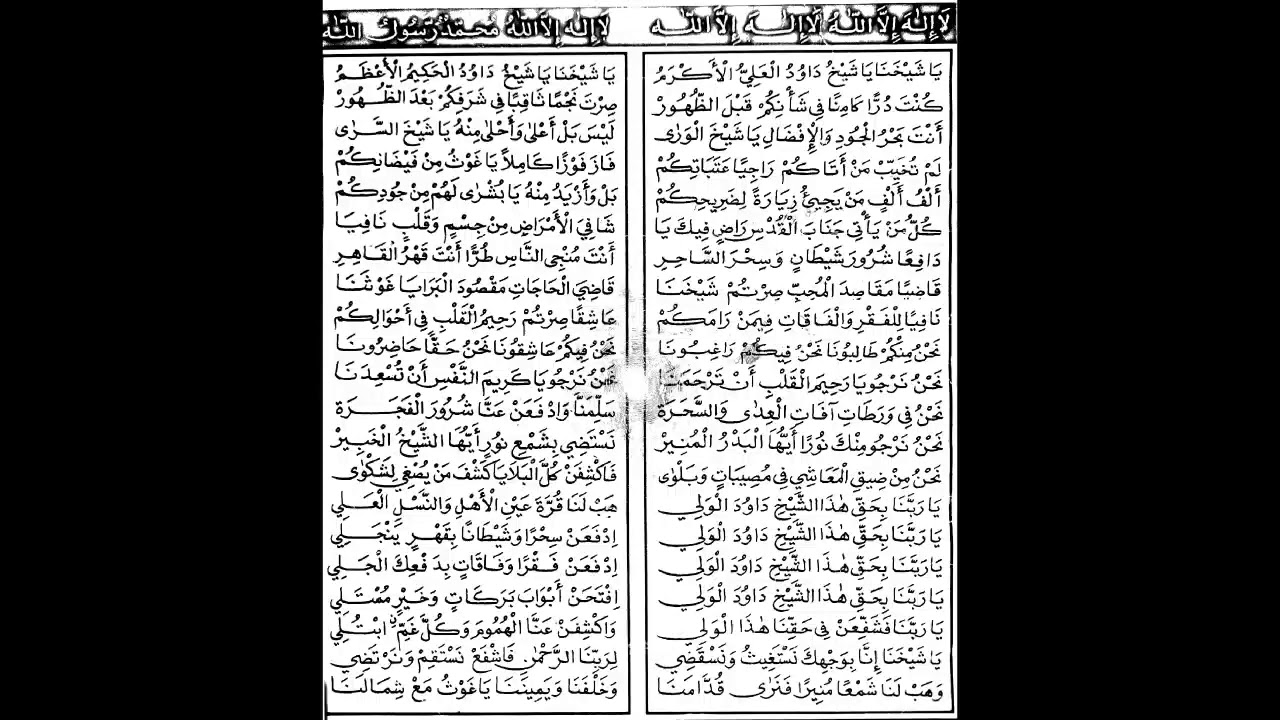 لَا إِلٰهَ إِلَّا اللّٰهُ لَا إِلٰهَ إِلَّا اللّٰه لَا إِلٰهَ إِلَّا اللّٰهُ مُحَمَّدٌ رَسُولُ اللّٰه
يَا شَيْخَنَا يَا شَيْخُ دَاوُدُ الْعَلِيُّ الْأَكْرَمُ يَا شَيْخَنَا يَا شَيْخُ دَاوُدُ الْحَكِيمُ الْأَعْظَمُ
كُنْتَ دُرًّا كَامِنًا فِي شَأْنِكُمْ قَبْلَ الظُّهُورْ صِرْتَ نَجْمًا ثَاقِبًا فِي شَرَفِكُمْ بَعْدَ الظُّهُورْ
أَنْتَ بَحْرُ الْجُودِ وَالْإِفْضَالِ يَا شَيْخَ الْوَرٰى لَيْسَ بَلْ أَعْلٰى وَأَحْلٰى مِنْهُ يَا شَيْخَ السَّرٰى
لَمْ تُخَيِّبْ مَنْ أَتَاكُمْ رَاجِيًا عَتَبَاتِكُمْ فَازَ فَوْزًا كَامِلاً يَا غَوْثُ مِنْ فَيْضَانِكُمْ
أَلْفُ أَلْفٍ مَنْ يَجِيئُ زِيَارَةً لِضَرِيحِكُمْ بَلْ وَأَزْيَدُ مِنْهُ يَا بُشْرٰى لَهُمْ مِنْ جُودِكُمْ
كُلُّ مَنْ يَأْتِي جَنَابَ الْقُدْسِ رَاضٍ فِيكَ يَا شَافِيَ الْأَمْرَاضِ مِنْ جِسْمٍ وَقَلْبٍ نَافِيَا
دَافِعًا شُرُورَ شَيْطَانٍ وَسِحْرَ السَّاحِرِ أَنْتَ مُنْجِي النَّاسِ طُرًّا أَنْتَ قَهْرُ الْقَاهِرِ
قَاضِيًا مَقَاصِدَ الْمُحِبِّ صِرْتُمْ شَيْخَنَا قَاضِيَ الْحَاجَاتِ مَقْصُودَ الْبَرَايَا غَوْثَنَا
نَافِيًا لِلْفَقْرِ وَالْفَاقَاتِ فِيمَنْ رَامَكُمْ عَاشِقًا صِرْتُمْ رَحِيمُ الْقَلْبِ فِي أَحْوَالِكُمْ
نَحْنُ مِنْكُمْ طَالِبُونَا نَحْنُ فِيكُمْ رَاغِبُونَا نَحْنُ فِيكُمْ عَاشِقُونَا نَحْنُ حَقًّا حَاضِرُونَا
نَحْنُ نَرْجُو يَا رَحِيمَ الْقَلْبِ أَنْ تَرْحَمَنَا نَحْنُ نَرْجُو يَا كَرِيمَ النَّفْسِ أَنْ تُسْعِدَنَا
نَحْنُ فِي وَرَطَاتِ آفَاتِ الْعِدٰى وَالسَّحَرَةِ سَلِّمَنَّا وَادْفَعَنْ عَنَّا شُرُورَ الْفَجَرَةِ
نَحْنُ نَرْجُو مِنْكَ نُورًا أَيُّهَا الْبَدْرُ الْمُنِيرْ نَسْتَضِي بِشَمْعِ نُورٍ أَيُّهَا الشَّيْخُ الْخَبِيرْ
نَحْنُ مِنْ ضِيقِ الْمَعَاشِي فِي مُصِيبَاتٍ وَبَلْوٰى فَاكْشِفَنْ كُلَّ الْبَلَايَا كَشْفَ مَنْ يُصْغِي لِشَكْوٰى
يَا رَبَّنَا بِحَقِّ هٰذَا الشَّيْخِ دَاوُدَ الْوَلِي هَبْ لَنَا قُرَّةَ عَيْنِ الْأَهْلِ وَالنَّسْلِ الْعَلِي
يَا رَبَّنَا بِحَقِّ هٰذَا الشَّيْخِ دَاوُدَ الْوَلِي اِدْفَعَنْ سِحْرًا وَشَيْطَانًا بِقَهْرٍ يَنْجَلِي
يَا رَبَّنَا بِحَقِّ هٰذَا الشَّيْخِ دَاوُدَ الْوَلِي اِدْفَعَنْ فَقْرًا وَفَاقَاتٍ بِدَفْعِكَ الْجَلِي
يَا رَبَّنَا بِحَقِّ هٰذَا الشَّيْخِ دَاوُدَ الْوَلِي اِفْتَحَنْ أَبْوَابَ بَرَكَاتٍ وَخَيْرٍ مُمْتَلِي
يَا رَبَّنَا فَشَفِّعَنْ فِي حَقِّنَا هٰذَا الْوَلِي وَاكْشِفَنْ عَنَّا الْهُمُومَ وَكُلَّ غَمٍّ ابْتُلِي
يَا شَيْخَنَا إِنَّا بِوَجْهِكَ نَسْتَغِيثُ وَنَسْقَضِي لِرَبِّنَا الرَّحْمٰنِ فَاشْفَعْ نَسْتَقِمْ وَنَرْتَضِي
وَهَبْ لَنَا شَمْعًا مُنِيرًا فَنَرٰى قُدَّامَنَا وَخَلْفَنَا وَيَمِينَنَا يَا غَوْثُ مَعْ شِمَالَنَا